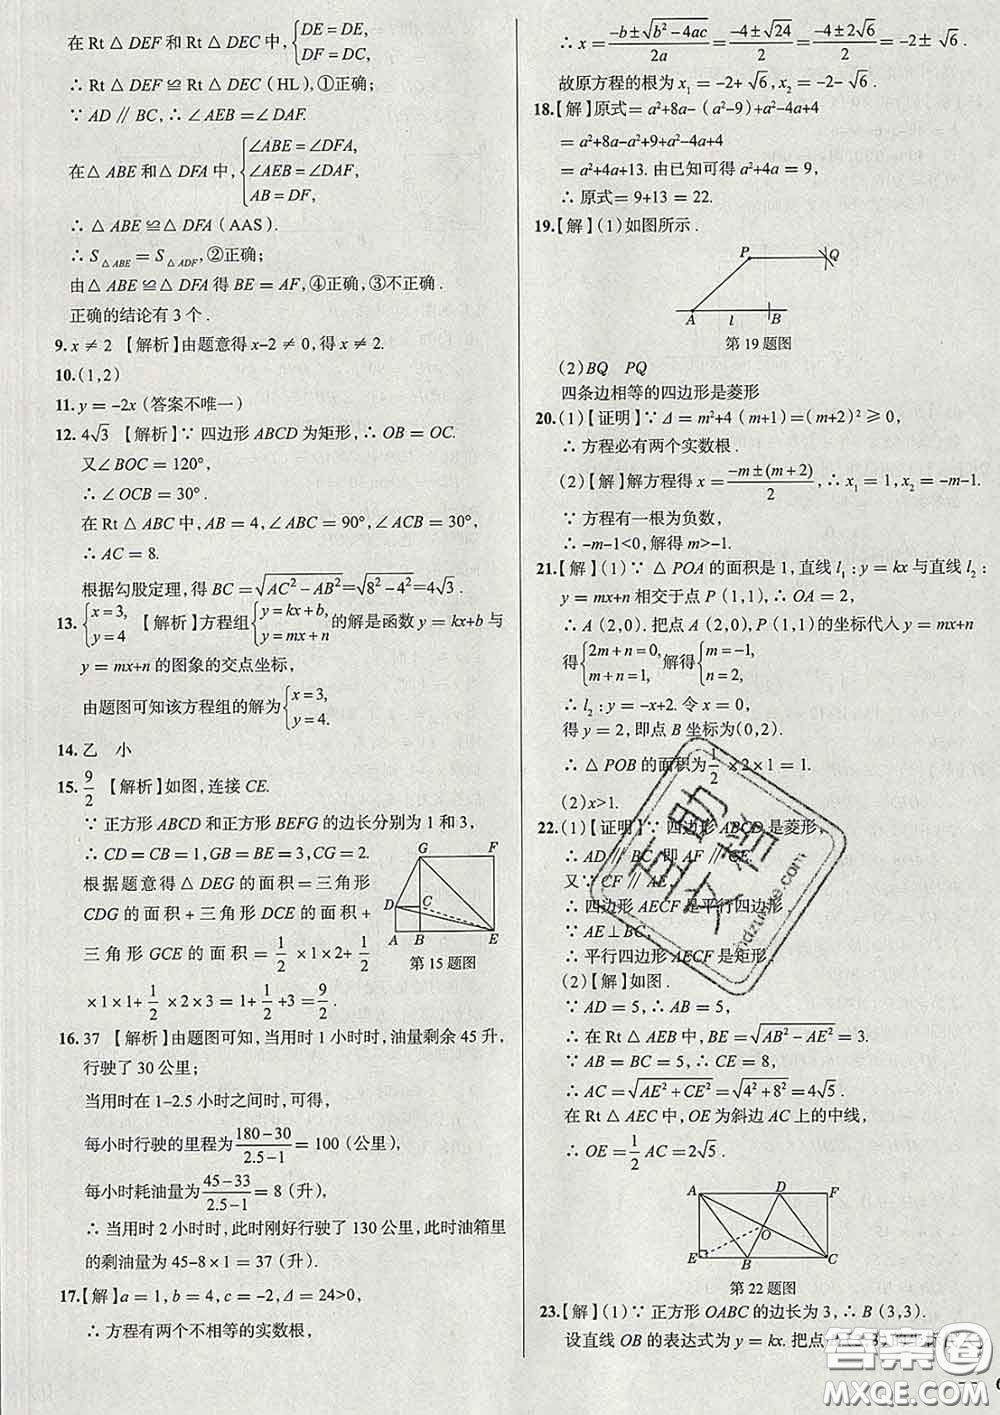 在 Rt △ DEF 和 Rt △ DEC 中, {DE = DE, DF = DC,
∴ Rt △ DEF ≌ Rt △ DEC (HL), ①正确;
∵ AD ∥ BC, ∴ ∠AEB = ∠DAF.
在△ ABE 和△ DFA 中, {∠ABE = ∠DFA, ∠AEB = ∠DAF, AB = DF,
∴ △ ABE ≌△ DFA (AAS).
∴ S△ABE = S△ADF, ②正确;
由△ ABE ≌△ DFA 得 BE = AF, ④正确, ③不正确.
正确的结论有 3 个 .
9. x ≠ 2 【解析】由题意得 x-2 ≠ 0, 得 x ≠ 2.
10. (1,2)
11. y = -2x (答案不唯一)
12. 4√3 【解析】∵ 四边形 ABCD 为矩形, ∴ OB = OC.
又∠BOC = 120°,
∴ ∠OCB = 30° .
在 Rt △ ABC 中, AB = 4, ∠ABC = 90°, ∠ACB = 30°,
∴ AC = 8.
根据勾股定理, 得 BC = √(AC² - AB²) = √(8² - 4²) = 4√3 .
13. {x = 3, y = 4 【解析】方程组{y = kx+b, y = mx+n 的解是函数 y = kx+b 与
y = mx+n 的图象的交点坐标,
由题图可知该方程组的解为{x = 3, y = 4.
14. 乙 小
15. 9/2 【解析】如图, 连接 CE.
∵ 正方形 ABCD 和正方形 BEFG 的边长分别为 1 和 3,
∴ CD = CB = 1, GB = BE = 3,
根据题意得△ DEG 的面积 = 三角形
CDG 的面积 + 三角形 DCE 的面积 +
三角形 GCE 的面积 = 1/2 × 1 × 2+ 1/2
× 1 × 1+ 1/2 × 2 × 3 = 1+ 1/2 +3 = 9/2 .
G F
D C
A B E
第 15 题图
16. 37 【解析】由题图可知, 当用时 1 小时时, 油量剩余 45 升,
行驶了 30 公里;
当用时在 1–2.5 小时之间时, 可得,
每小时行驶的里程为 (180-30)/(2.5-1) = 100 (公里),
每小时耗油量为 (45-33)/(2.5-1) = 8 (升)
∴ 当用时 2 小时时, 此时刚好行驶了 130 公里, 此时油箱里
的剩油量为 45-8 × 1 = 37 (升) .
17.【解】a = 1, b = 4, c = -2, Δ = 24>0,
∴ 方程有两个不相等的实数根,
∴ x = (-b±√(b² - 4ac))/2a = (-4±√24)/2 = (-4±2√6)/2 = -2± √6 .
故原方程的根为 x₁ = -2+ √6, x₂ = -2- √6 .
18.【解】原式 = a²+8a- ( a²-9) +a²-4a+4
= a²+8a-a²+9+a²-4a+4
= a²+4a+13. 由已知可得 a²+4a = 9,
∴ 原式 = 9+13 = 22.
19.【解】(1) 如图所示 .
P Q
A l B
第 19 题图
(2) BQ PQ
四条边相等的四边形是菱形
20. (1)【证明】∵ Δ = m²+4 (m+1) = (m+2) ² ≥ 0,
∴ 方程必有两个实数根 .
(2)【解】解方程得 x = (-m ± (m + 2))/2, ∴ x₁ = 1, x₂ = -m-1.
∵ 方程有一根为负数,
∴ -m-1<0, 解得 m>-1.
21.【解】(1) ∵ △ POA 的面积是 1, 直线 l₁ : y = kx 与直线 l₂ :
y = mx+n 相交于点 P (1,1), ∴ OA = 2,
∴ A (2,0). 把点 A (2,0), P (1,1) 的坐标代入 y = mx+n
得{2m + n = 0, m + n = 1, 解得{m = -1, n = 2,
∴ l₂ : y = -x+2. 令 x = 0,
得 y = 2, 即点 B 坐标为(0,2).
∴ △ POB 的面积为 1/2 × 2 × 1 = 1.
(2) x>1.
22. (1)【证明】∵ 四边形 ABCD 是菱形,
∴ AD ∥ BC, 即 AF ∥ CE.
又∵ CF ∥ AE,
∴ 四边形 AECF 是平行四边形 .
∵ AE⊥BC,
∴ 平行四边形 AECF 是矩形.
(2)【解】如图.
∵ AD = 5, ∴ AB = 5,
∴ 在 Rt △ AEB 中, BE = √(AB² - AE²) = 3.
∵ AB = BC = 5, ∴ CE = 8,
∴ AC = √(AE² + CE²) = √(4² + 8²) = 4√5 .
在 Rt △ AEC 中, OE 为斜边 AC 上的中线,
∴ OE = 1/2 AC = 2√5 .
A D F
O
E B C
第 22 题图
23.【解】(1) ∵ 正方形 OABC 的边长为 3, ∴ B (3,3).
设直线 OB 的表达式为 y = kx. 把点
互助文档
hdzuoye.com
答案圈
MXQE.COM